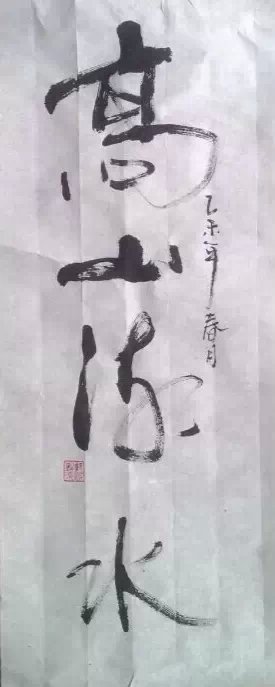 高山流水
乙未年春月